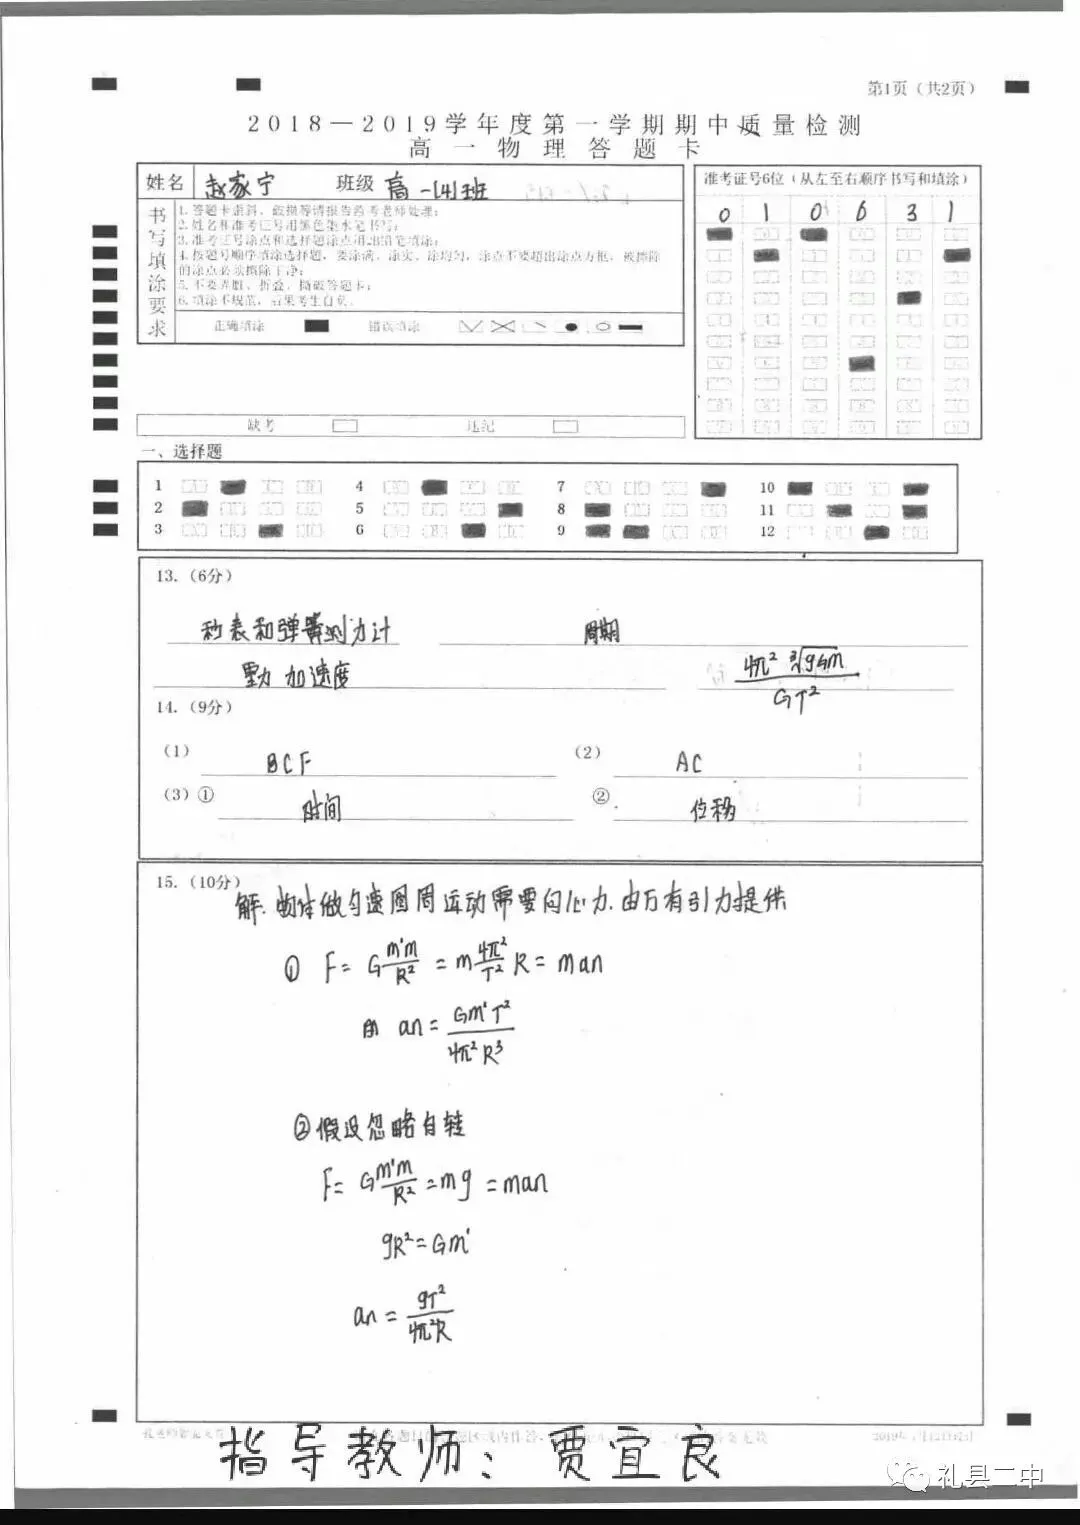 第1页（共2页）
2018—2019学年度第一学期期中质量检测
高一物理答题卡
姓名 赵家宁 班级 高一(4)班
准考证号6位（从左至右顺序书写和填涂）
0 1 0 6 3 1
书写填涂要求
1.答题卡歪斜、破损等请报告监考老师处理;
2.姓名和准考证号用黑色墨水笔书写;
3.准考证号涂点和选择题涂点用2B铅笔填涂;
4.按题号顺序填涂选择题，要涂满、涂实、涂均匀，涂点不要超出涂点方框，被擦除
的涂点必须擦除干净;
5.不要弄皱、折叠、撕破答题卡;
6.填涂不规范，后果考生自负。
正确填涂 错误填涂
缺考 违纪
一、选择题
1 4 7 10
2 5 8 11
3 6 9 12
13.（6分）
秒表和弹簧测力计 周期
重力加速度 4π² ³√gGm / GT²
14.（9分）
（1） BCF （2） AC
（3）① 时间 ② 位移
15.（10分）
解:物体做匀速圆周运动需要向心力.由万有引力提供
① F= G m'm/R² = m 4π²/T² R = man
an = Gm'T² / 4π²R³
②假设忽略自转
F= G m'm/R² =mg =man
gR²=Gm'
an = gT² / 4π²R
指导教师：贾宜良
礼县二中